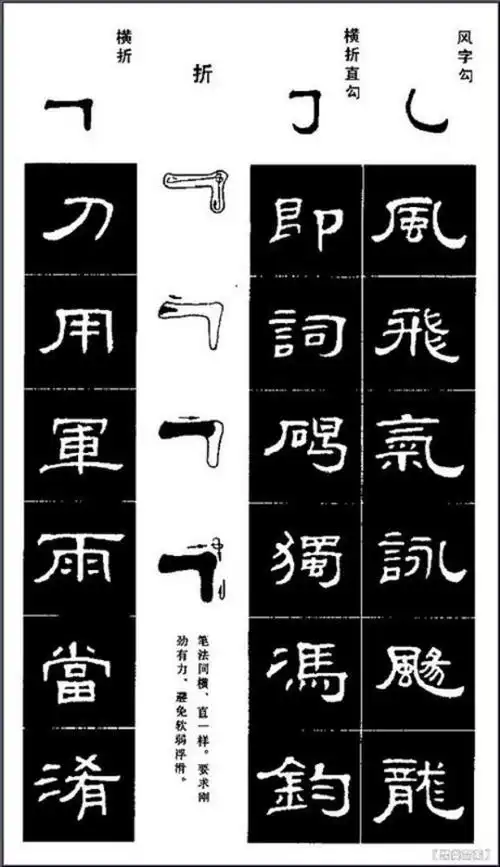 风字勾
風
飛
氣
詠
颺
龍
横折直勾
即
詞
獨
馮
鈞
折
笔法同横、直一样。要求刚
劲有力，避免软弱浮滑。
横折
刀
用
軍
雨
當
淆